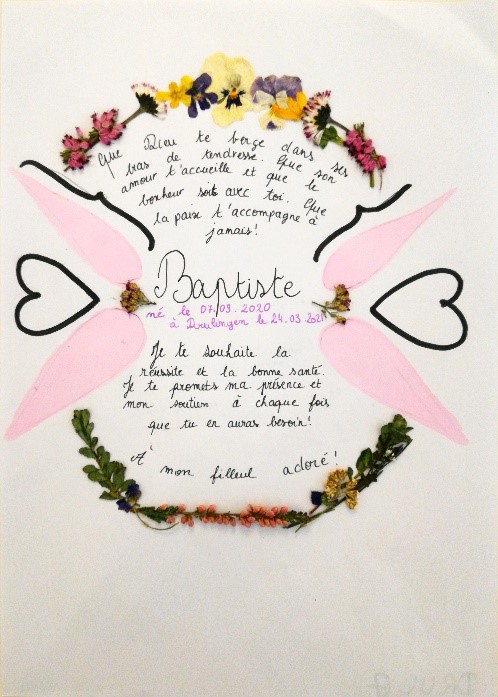 Que Dieu te berge dans ses
bras de tendresse. Que son
amour t'accueille et que le
bonheur soit avec toi. Que
la paix t'accompagne à
jamais!
Baptiste
né le 07.09.2020
à Drulingen le 24.03.2021
Je te souhaite la
réussite et la bonne santé.
Je te promets ma présence et
mon soutien à chaque fois
que tu en auras besoin!
A mon filleul adoré!